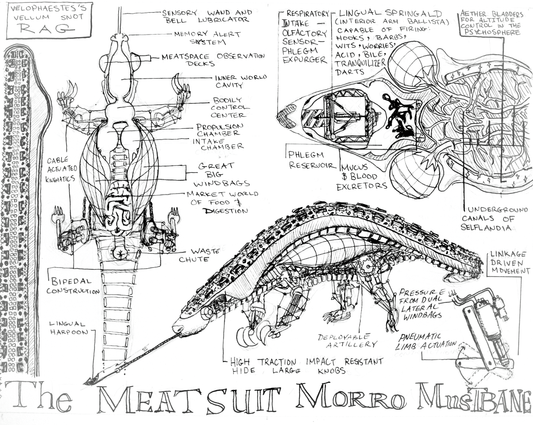 VELOPHAESTES'S
VELLUM SNOT
RAG
SENSORY WAND AND
BELL LUBRICATOR
MEMORY ALERT
SYSTEM
MEATSPACE OBSERVATION
DECKS
INNER WORLD
CAVITY
BODILY
CONTROL
CENTER
PROPULSION
CHAMBER
INTAKE
CHAMBER
GREAT
BIG
WINDBAGS
MARKET WORLD
OF FOOD &
DIGESTION
WASTE
CHUTE
CABLE
ACTUATED
BIPEDAL
CONSTRUCTION
LINGUAL
HARPOON
RESPIRATORY
INTAKE -
OLFACTORY
SENSOR -
PHLEGM
EXPURGER
LINGUAL SPRINGALD
(INTERIOR ARM BALLISTA)
CAPABLE OF FIRING:
HOOKS, BARBS,
WITS, WORRIES,
ACID, BILE,
TRANQUILIZER
DARTS
AETHER BLADDERS
FOR ALTITUDE
CONTROL IN THE
PSYCHOSPHERE
PHLEGM
RESERVOIR
MUCUS
& BLOOD
EXCRETORS
UNDERGROUND
CANALS OF
SELFLANDIA
LINKAGE
DRIVEN
MOVEMENT
PRESSURE
FROM DUAL
LATERAL
WINDBAGS
PNEUMATIC
LIMB ACTUATION
DEPLOYABLE
ARTILLERY
HIGH TRACTION IMPACT RESISTANT
HIDE LARGE KNOBS
The MEATSUIT MORRO MUSTBANE